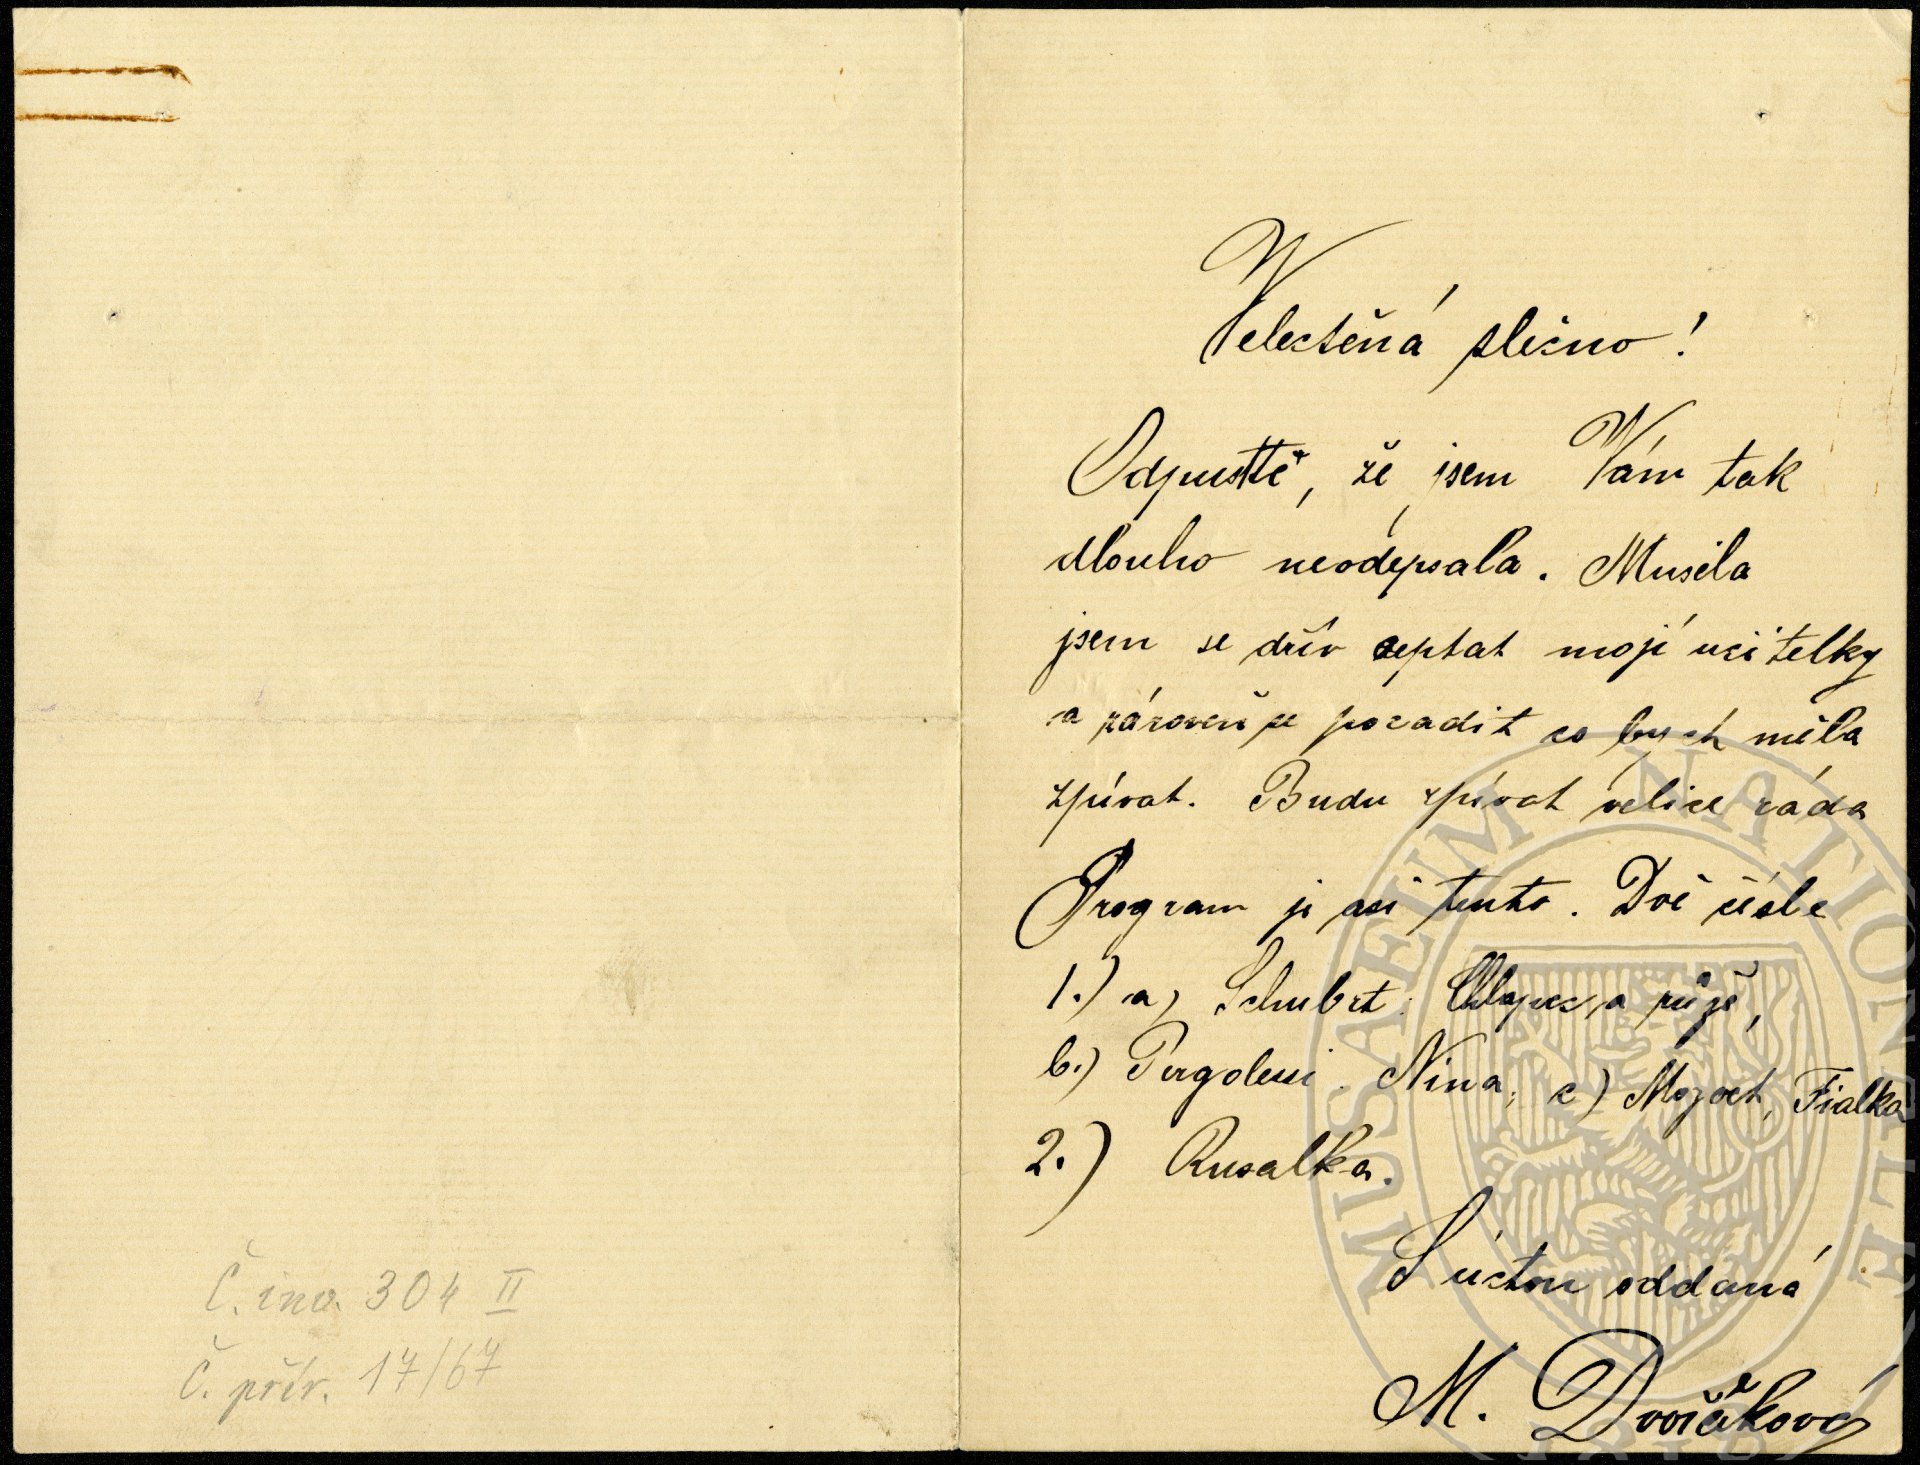 Č. inv. 304 II
Č. přír. 17/67
Velectěná slečno!
Odpusťte, že jsem Vám tak
dlouho neodepsala. Musela
jsem se dřív zeptat mojí učitelky
a zároveň se poradit co bych měla
zpívat. Budu zpívat velice ráda
Program je asi tento. Dvě čísla
1.) a) Schubrt: Chlapec a růže,
b.) Pergolesi. Nina, c) Mozart, Fialka
2.) Rusalka.
S úctou oddaná
M. Dvořáková
MUSAEUM NATIONALE